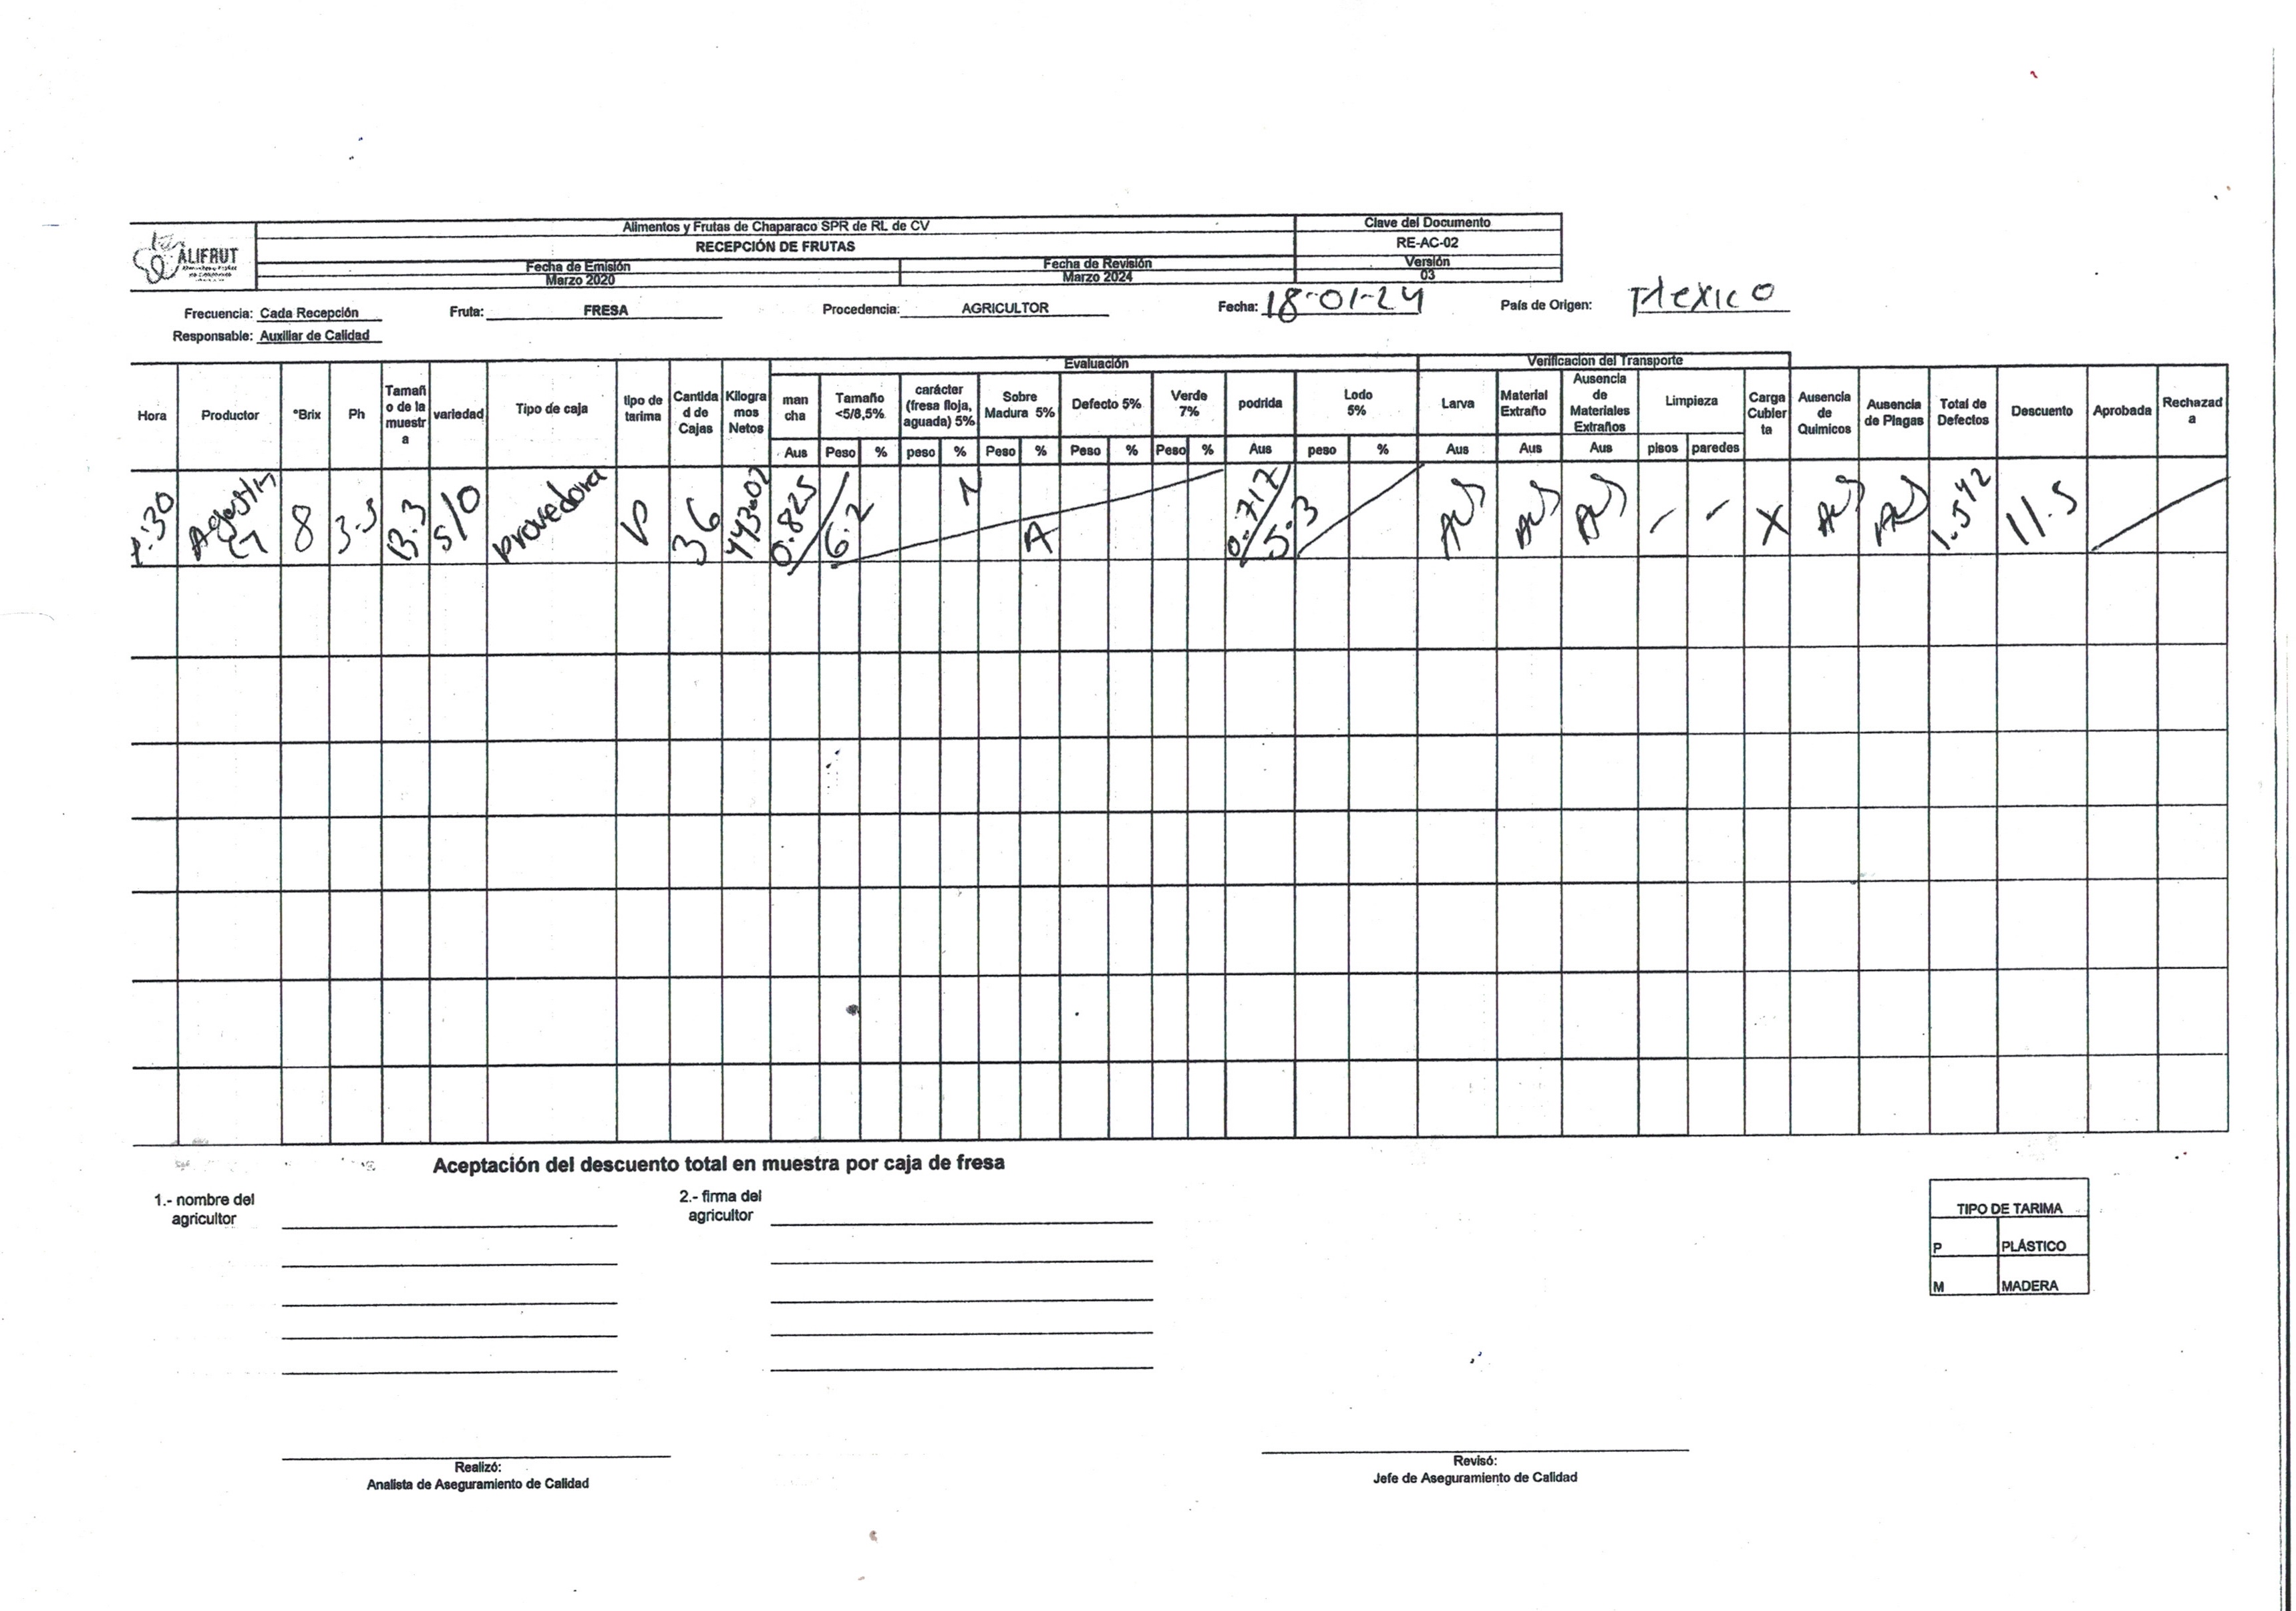 ALIFRUT
Alimentos y Frutas de Chaparaco SPR de RL de CV
RECEPCIÓN DE FRUTAS
Fecha de Emisión
Marzo 2020
Fecha de Revisión
Marzo 2024
Clave del Documento
RE-AC-02
Versión
03
Frecuencia: Cada Recepción
Fruta: FRESA
Procedencia: AGRICULTOR
Fecha: 18-01-24
País de Origen: Mexico
Responsable: Auxiliar de Calidad
Evaluación
Verificacion del Transporte
Hora
Productor
°Brix
Ph
Tamañ
o de la
muestr
a
variedad
Tipo de caja
tipo de
tarima
Cantida
d de
Cajas
Kilogra
mos
Netos
man
cha
Aus
Tamaño
<5/8,5%
Peso %
carácter
(fresa floja,
aguada) 5%
peso %
Sobre
Madura 5%
Peso %
Defecto 5%
Peso %
Verde
7%
Peso %
podrida
Aus
Lodo
5%
peso %
Larva
Aus
Material
Extraño
Aus
Ausencia
de
Materiales
Extraños
Aus
Limpieza
pisos paredes
Carga
Cubier
ta
Ausencia
de
Quimicos
Ausencia
de Plagas
Total de
Defectos
Descuento
Aprobada
Rechazad
a
:30
Agustin
8
3.5
13.3
S/O
Provedora
P
36
443.02
0.825/
6.2
N
A
0.717/
5.3
AUS
AUS
AUS
X
AUS
AUS
1.542
11.5
Aceptación del descuento total en muestra por caja de fresa
1.- nombre del
agricultor
2.- firma del
agricultor
TIPO DE TARIMA
P PLÁSTICO
M MADERA
Realizó:
Analista de Aseguramiento de Calidad
Revisó:
Jefe de Aseguramiento de Calidad